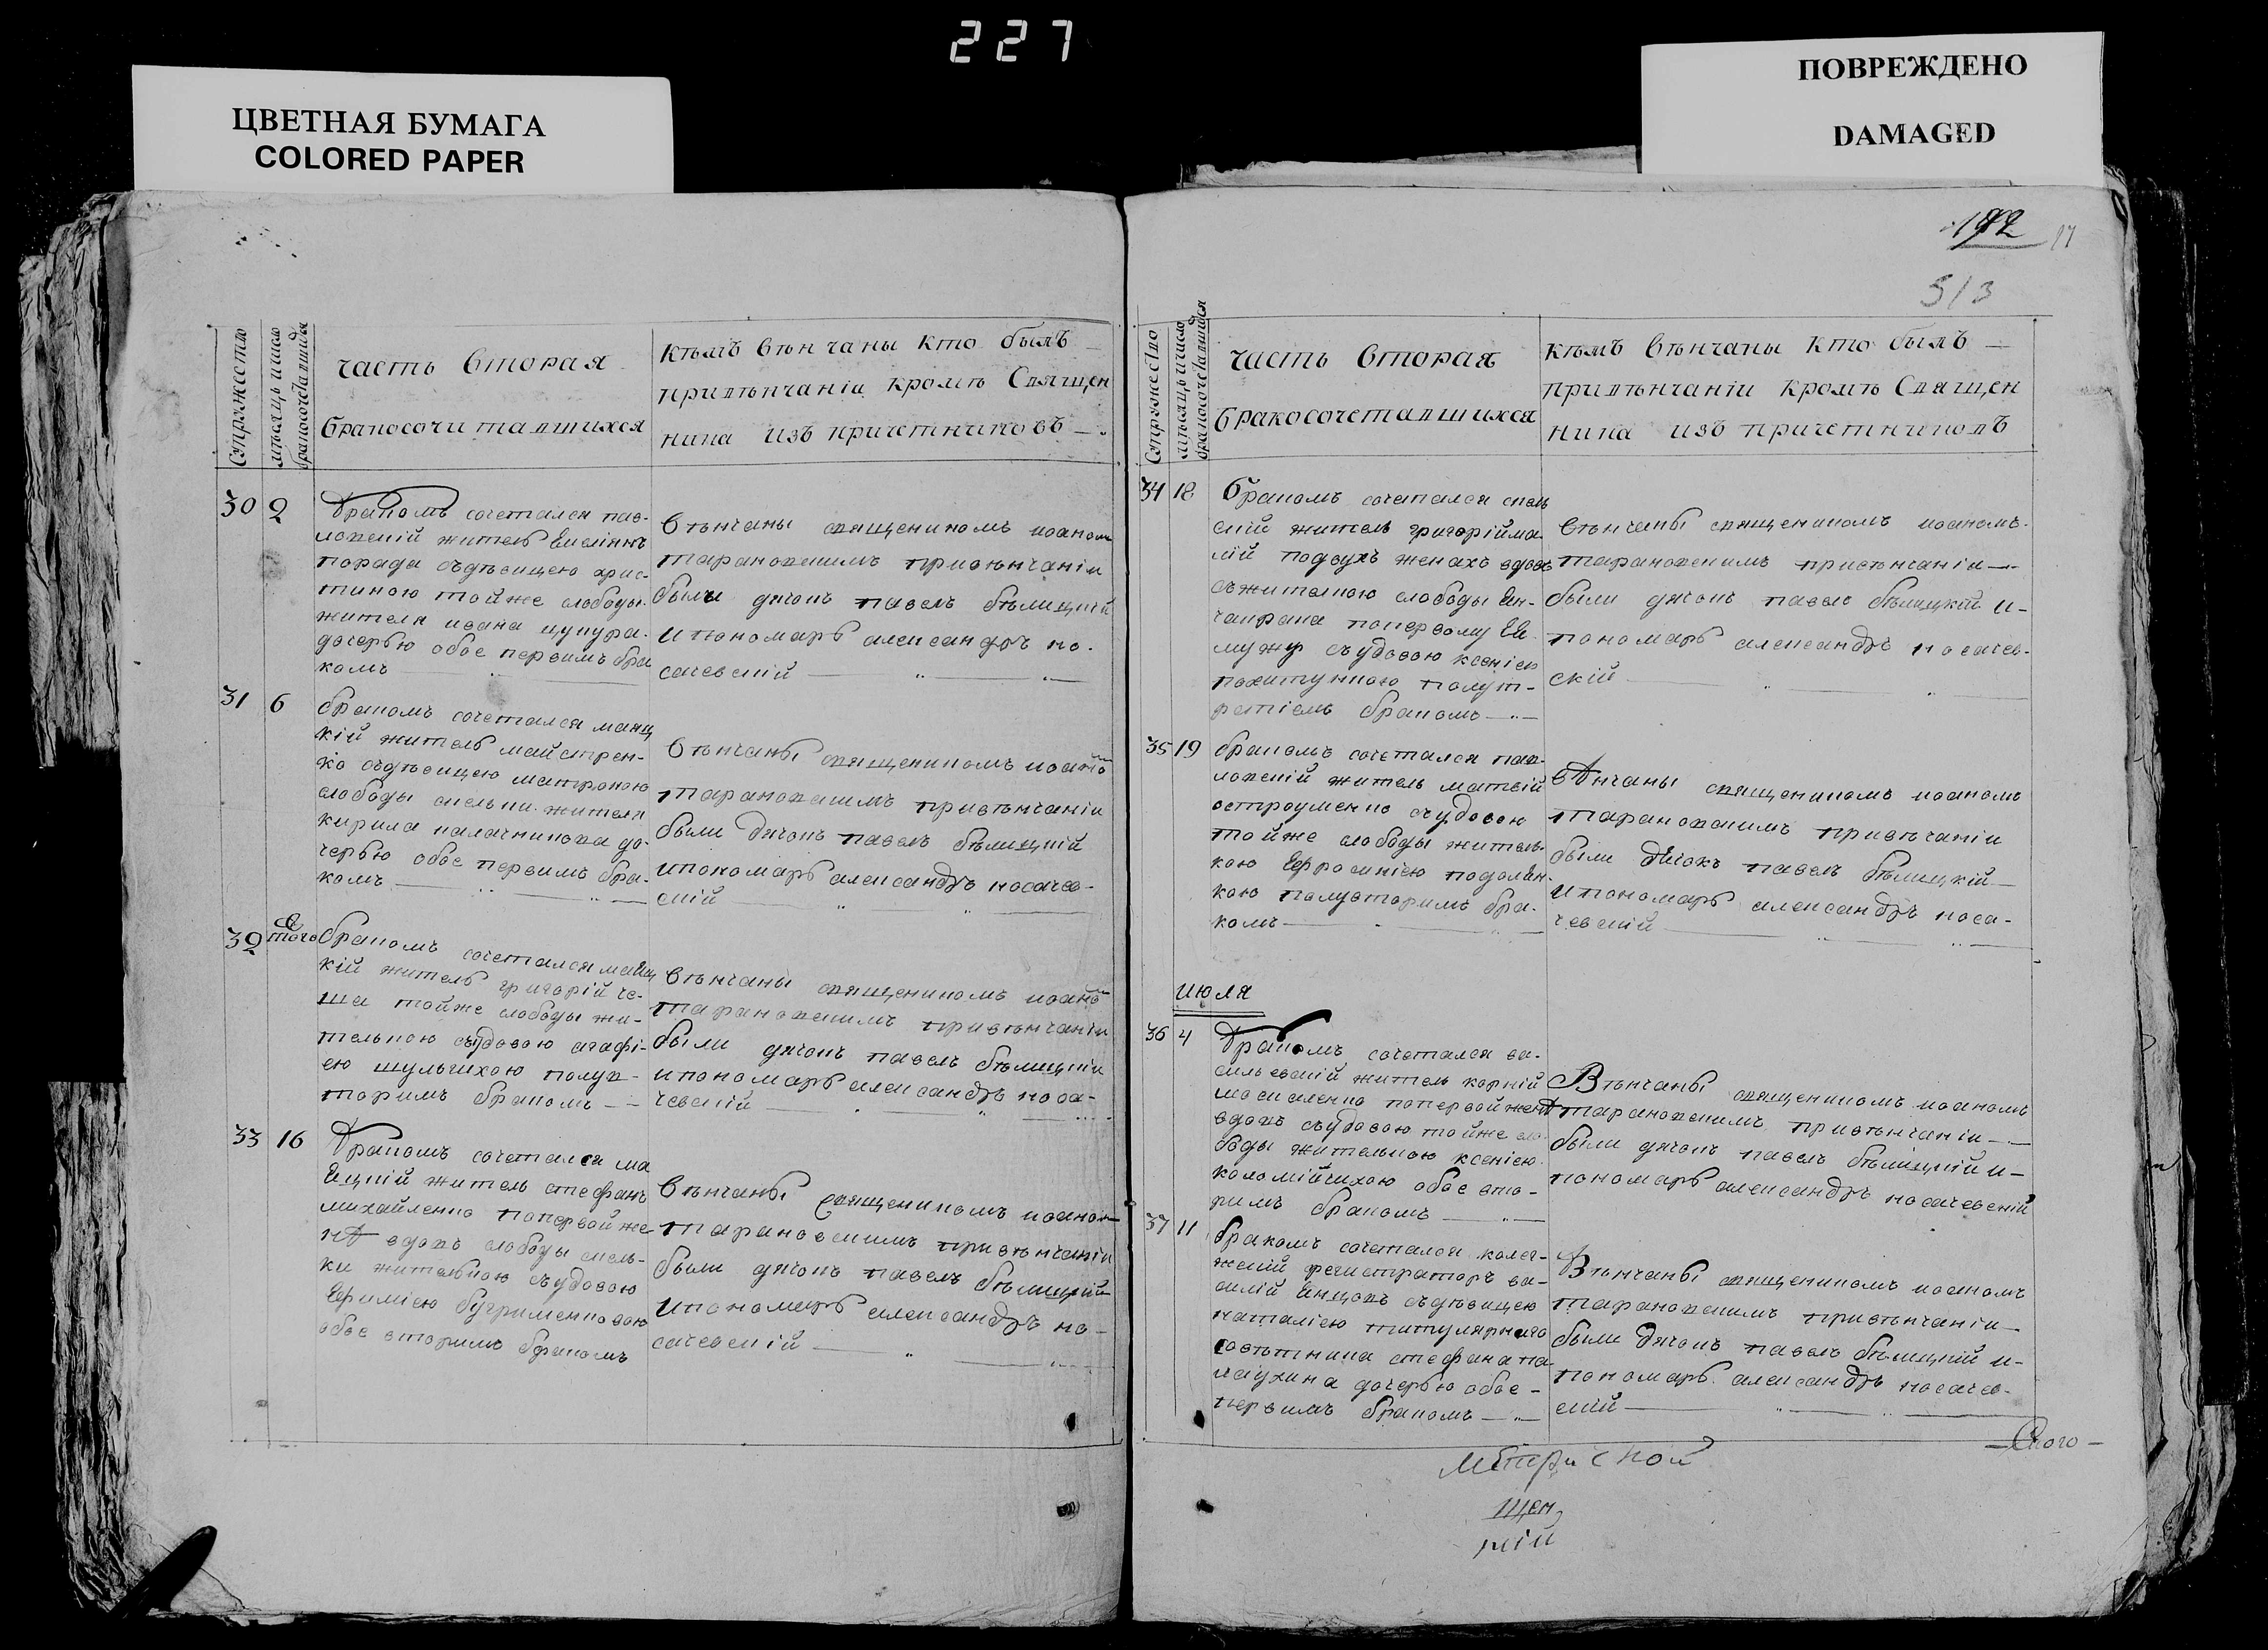 227
ЦВЕТНАЯ БУМАГА
COLORED PAPER
ПОВРЕЖДЕНО
DAMAGED
192
17
513
Супружество
мѣсяцъ и число
бракосочетавшихся
часть вторая
бракосочитавшихся
кѣмъ вѣнчаны кто былъ —
привѣнчаніи кромѣ Священ
ника изъ причетниковъ —
30 2
Бракомъ сочетался пав-
ловскій житель
порада съдѣвицею хрис-
тиною тойже слободы
жителя ивана цупура
дочерью обое первимъ бра
комъ
вѣнчаны священикомъ иоаном
тарановскимъ привѣнчаніи
были дячокъ павелъ бѣлицкій
ипономарь александръ но-
сачевскій
31 6
бракомъ сочетался маяц
кій житель майстрен-
ко съдѣвицею матроною
слободы смелки жителя
кирила калачникова до-
черью обое первимъ бра-
комъ
вѣнчаны священикомъ иоано
тарановскимъ привѣнчаніи
были дячокъ павелъ бѣлицкій
ипономарь александръ носачев-
скій
32 того
бракомъ сочетался маяц
кій житель григорій че-
ша тойже слободы жи-
телькою съудовою агафі-
ею шульгихою полув-
торимъ бракомъ —
вѣнчаны священикомъ иоано
тарановскимъ привѣнчаніи
были дячокъ павелъ бѣлицкій
ипономарь александръ носа-
чевскій
33 16
Бракомъ сочетался ма
яцкій житель стефанъ
михайленко попервой же
нѣ вдовъ слободы смель-
ки жителькою съудовою
Ефиміею бугрименковою
обое вторимъ бракомъ
вѣнчаны священикомъ иоаном
тарановскимъ привѣнчаніи
были дячокъ павелъ бѣлицкій
ипономарь александръ но-
сачевскій
Супружество
мѣсяцъ и число
бракосочетавшихся
часть вторая
бракосочетавшихся
кѣмъ вѣнчаны кто былъ —
привѣнчаніи кромѣ Священ
ника изъ причетниковъ
34 18
бракомъ сочетался смель
скій житель григорій ма-
лій подвухъ женахъ вдовъ
съжителкою слободы
попервому Ея
мужу съудовою ксеніею
полут-
ретіемъ бракомъ —
вѣнчаны священикомъ иоаномъ
тарановскимъ привѣнчаніи —
были дячокъ павелъ бѣлицкій и-
пономарь александръ носачев-
скій
35 19
бракомъ сочетался пав-
ловскій житель матвій
остроуменко съудовою
тойже слободы житель-
кою Ефросиніею подолян-
кою полувторимъ бра-
комъ
вѣнчаны священикомъ иоаномъ
тарановскимъ привѣчаніи
были дячокъ павелъ бѣлицкій —
ипономарь александръ носа-
чевскій
июля
36 4
Бракомъ сочетался ва-
сильевскій житель корній
москаленко попервой женѣ
вдовъ съудовою тойже сло-
боды жителькою ксеніею
коломійчихою обое вто-
римъ бракомъ
Вѣнчаны священикомъ иоаномъ
тарановскимъ привѣнчаніи —
были дячокъ павелъ бѣлицкій и-
пономарь александръ носачевскій
37 11
бракомъ сочетался колеж-
жскій регистраторъ ва-
силій Янцовъ съдѣвицею
наталіею титулярнаго
совѣтника стефана
дочерью обое -
первимъ бракомъ —
Вѣнчаны священикомъ иоаномъ
тарановскимъ привѣнчаніи —
были дячокъ павелъ бѣлицкій и-
пономарь александръ носачев-
скій
щен
кій